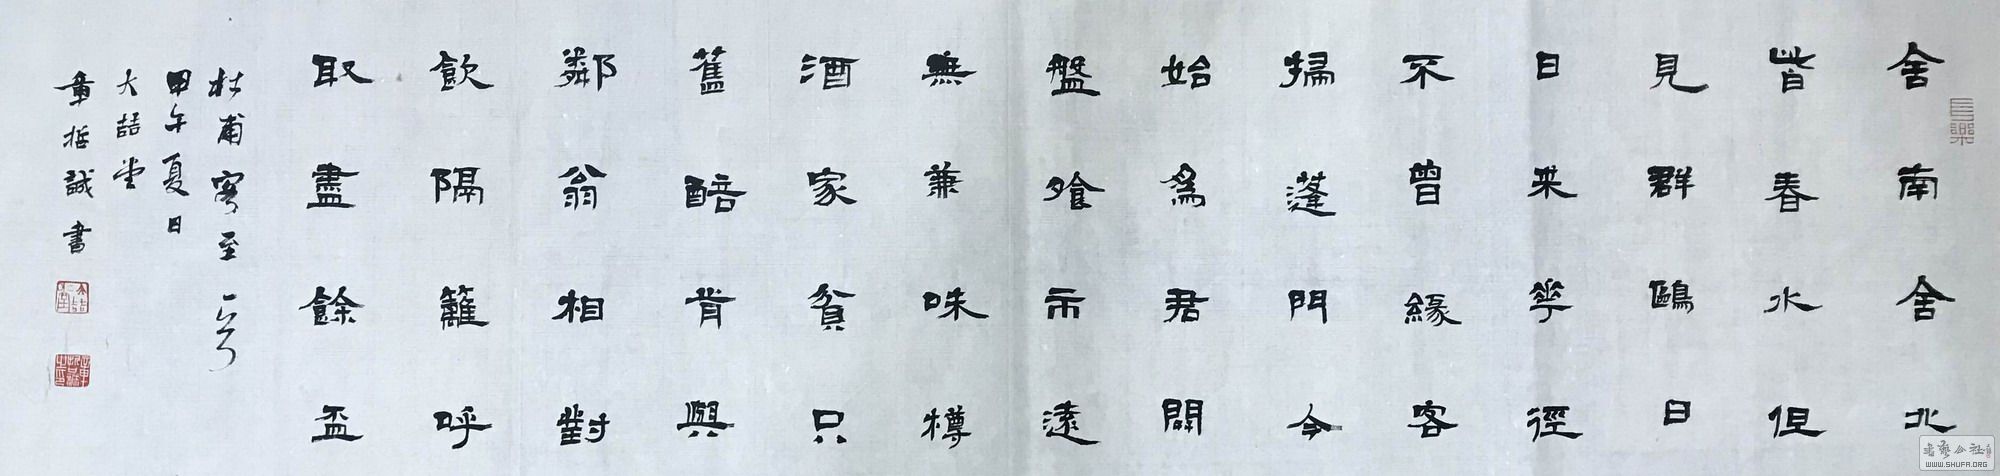 舍南舍北
皆春水但
見群鷗日
日来華徑
不曾緣客
掃蓬門今
始爲君開
盤飧市遠
無兼味樽
酒家貧只
舊醅肯與
鄰翁相對
飲隔籬呼
取盡餘盃
杜甫客至一首
甲午夏日
大喆堂
章哲誠書
長樂
書藝公社
WWW.SHUFA.ORG